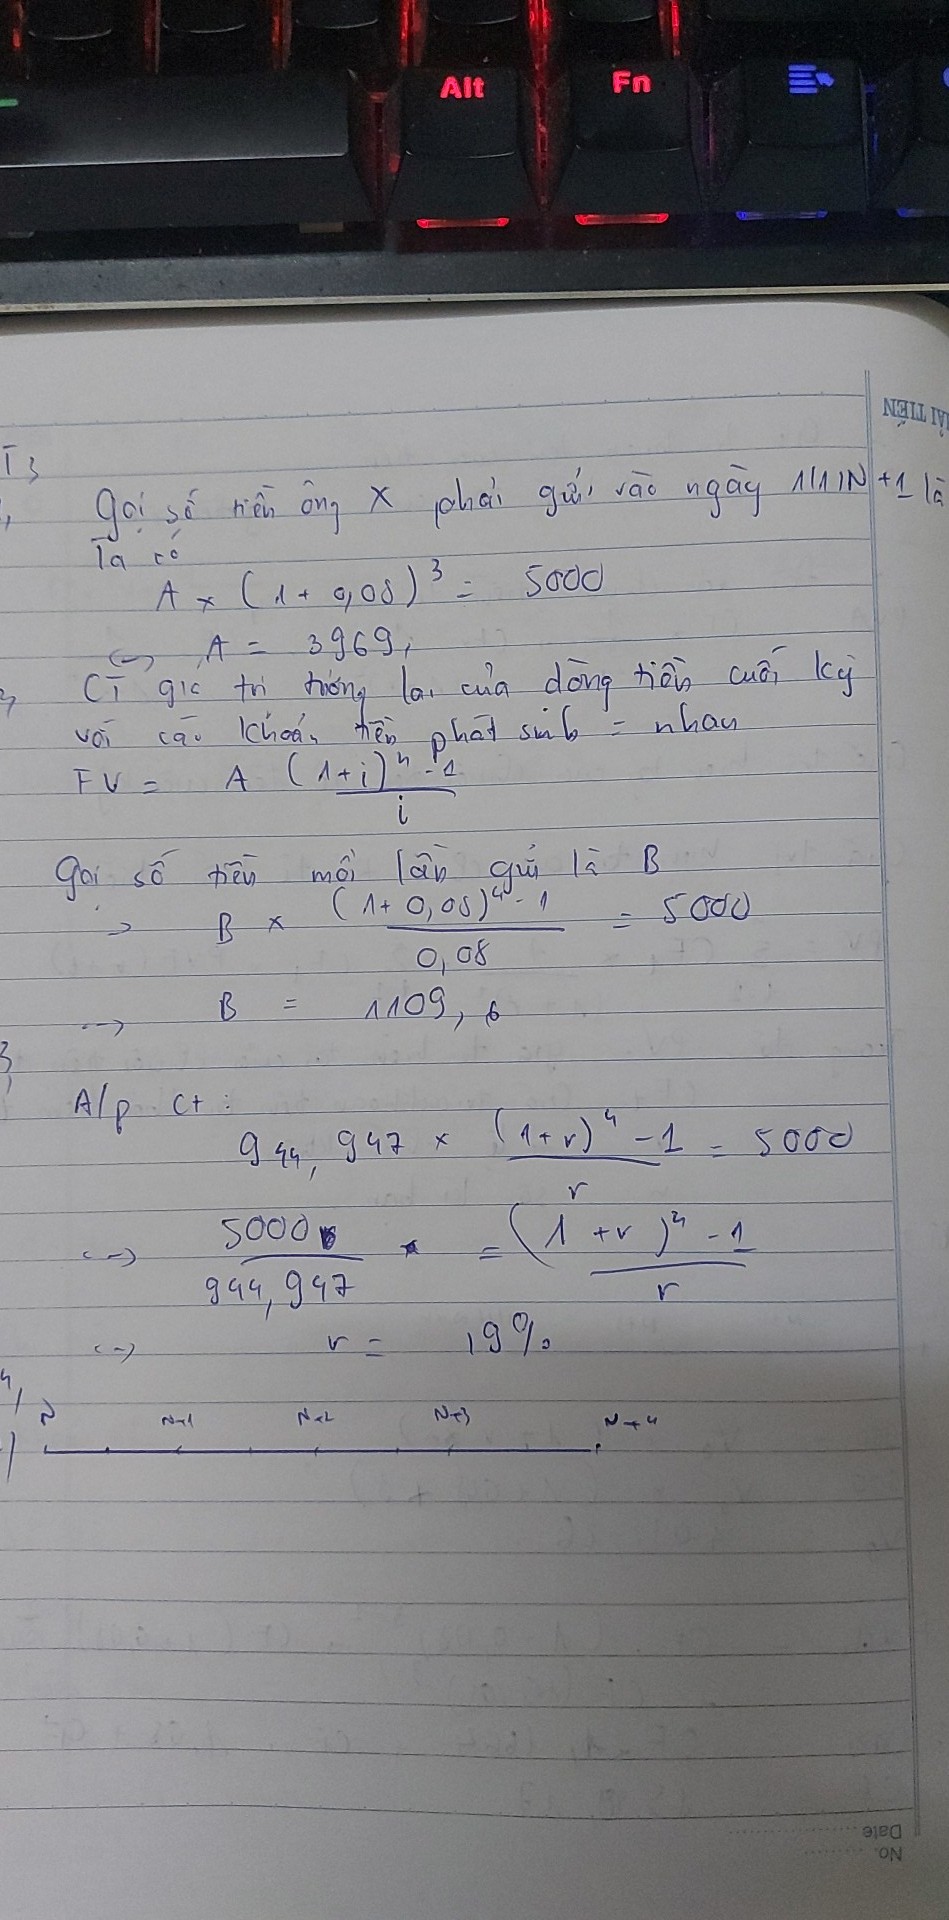 Alt
Fn
HẢI TIẾN
T3
Gọi số tiền ông X phải gửi vào ngày 1/1/N+1 là
Ta có
A × (1 + 0,08)³ = 5000
<-> A = 3969,
CT giá trị tương lai của dòng tiền cuối kỳ
với các khoản tiền phát sinh = nhau
FV = A (1+i)ⁿ - 1 / i
Gọi số tiền mỗi lần gửi là B
-> B × (1 + 0,08)⁴ - 1 / 0,08 = 5000
-> B = 1109,6
3,
A/p ct :
944,947 × (1+r)⁴ - 1 / r = 5000
<-> 5000 / 944,947 = (1 + r)⁴ - 1 / r
<-> r = 19%
4,
N N+1 N+2 N+3 N+4
Date
No.